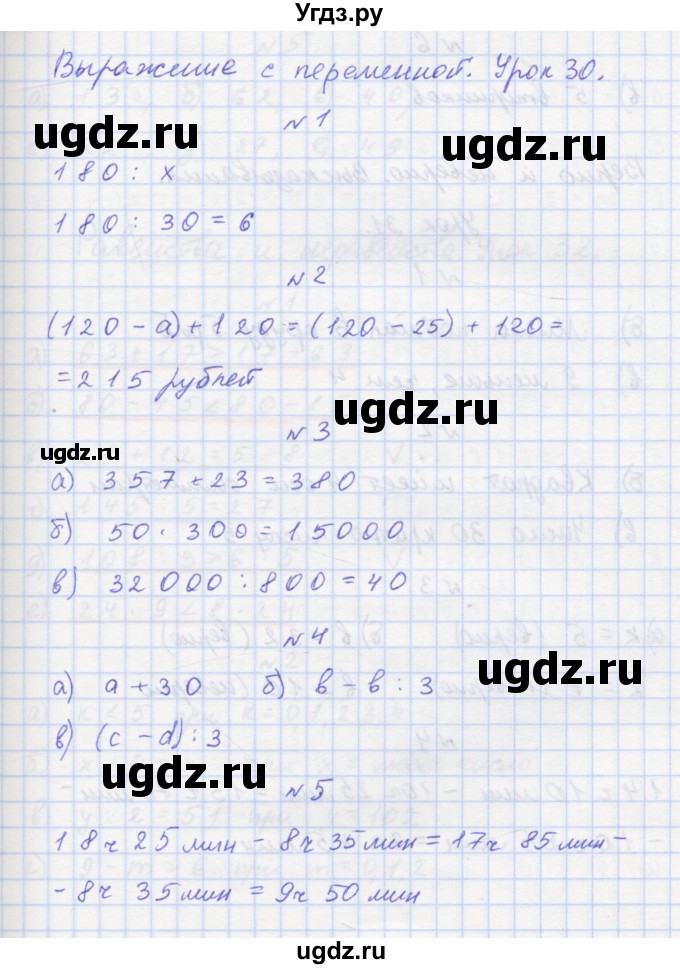 Угдз.ру
Выражение с переменной. Урок 30.
№1
ugdz.ru
ugdz.ru
180 : x
180 : 30 = 6
№2
(120 - а) + 120 = (120 - 25) + 120 =
= 215 рублей
ugdz.ru
№3
ugdz.ru
а) 357 + 23 = 380
б) 50 · 300 = 15000
в) 32000 : 800 = 40
№4
ugdz.ru
а) а + 30 б) в - в : 3
в) (с - d) : 3
ugdz.ru
№5
18ч 25мин - 8ч 35мин = 17ч 85мин -
- 8ч 35мин = 9ч 50мин
ugdz.ru